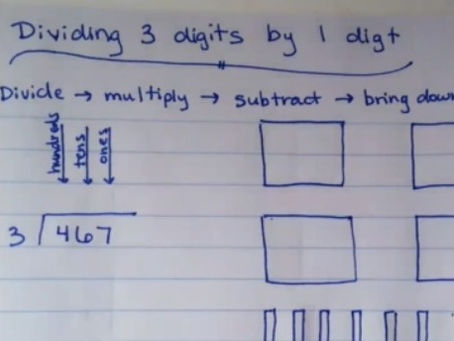 Dividing 3 digits by 1 digt
Divide → multiply → subtract → bring down
hundreds tens ones
3 467